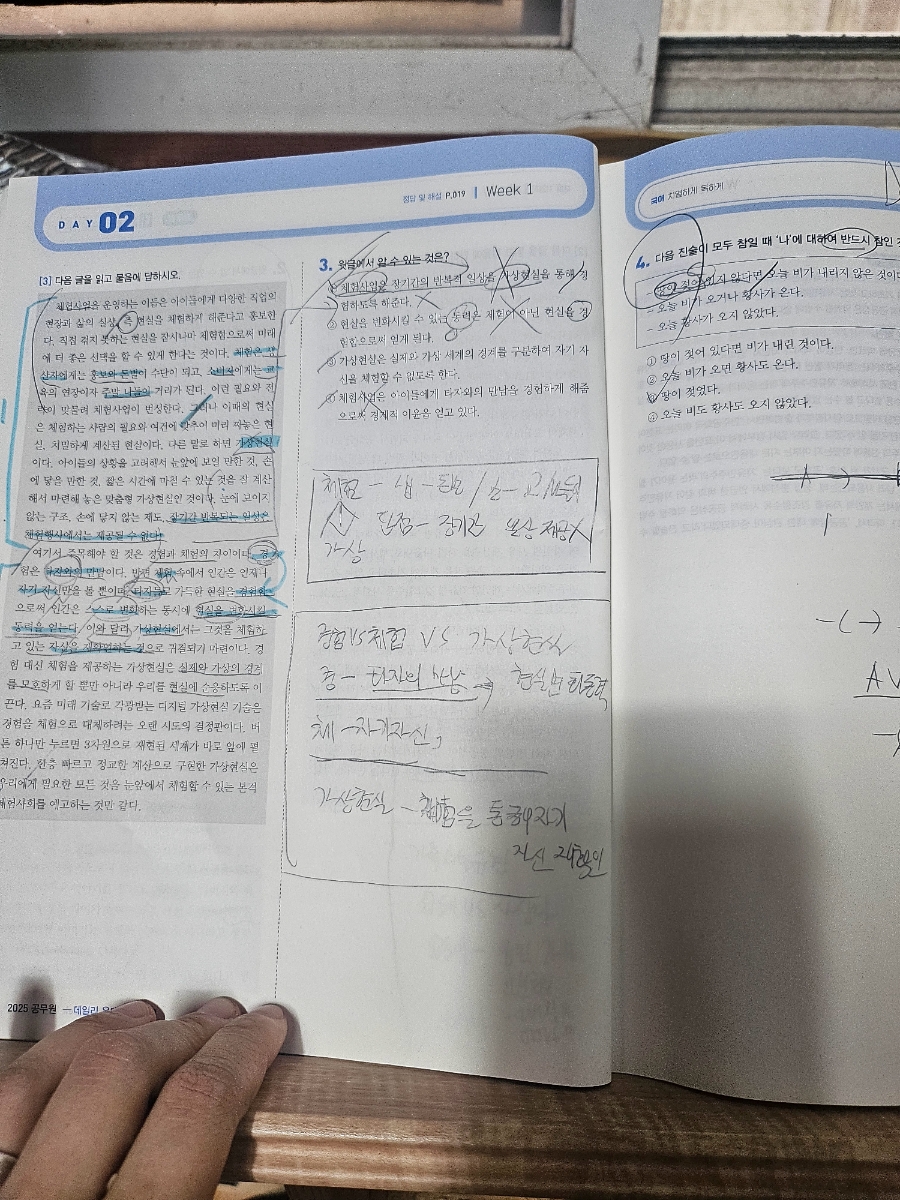 정답 및 해설 P.019 | Week 1
DAY 02
[3] 다음 글을 읽고 물음에 답하시오.
체험사업을 운영하는 이들은 아이들에게 다양한 직업의
현장과 삶의 실상, 즉 현실을 체험하게 해준다고 홍보한
다. 직접 겪지 못하는 현실을 잠시나마 체험함으로써 미래
에 더 좋은 선택을 할 수 있게 한다는 것이다. 체험은 생
산자에게는 홍보와 돈벌이 수단이 되고, 소비자에게는 교
육의 연장이자 주말 나들이 거리가 된다. 이런 필요와 전
략이 맞물려 체험사업이 번성한다. 그러나 이때의 현실
은 체험하는 사람의 필요와 여건에 맞추어 미리 짜놓은 현
실, 치밀하게 계산된 현실이다. 다른 말로 하면 가상현실
이다. 아이들의 상황을 고려해서 눈앞에 보일 만한 것, 손
에 닿을 만한 것, 짧은 시간에 마칠 수 있는 것을 잘 계산
해서 마련해 놓은 맞춤형 가상현실인 것이다. 눈에 보이지
않는 구조, 손에 닿지 않는 제도, 장기간 반복되는 일상은
체험행사에서는 제공될 수 없다.
여기서 주목해야 할 것은 경험과 체험의 차이이다. 경
험은 타자와의 만남이다. 반면 체험 속에서 인간은 언제나
자기 자신만을 볼 뿐이다. 타자들로 가득한 현실을 경험함
으로써 인간은 스스로 변화하는 동시에 현실을 변화시킬
동력을 얻는다. 이와 달리 가상현실에서는 그것을 체험하
고 있는 자신을 재확인하는 것으로 귀결되기 마련이다. 경
험 대신 체험을 제공하는 가상현실은 실제와 가상의 경계
를 모호하게 할 뿐만 아니라 우리를 현실에 순응하도록 이
끈다. 요즘 미래 기술로 각광받는 디지털 가상현실 기술은
경험을 체험으로 대체하려는 오랜 시도의 결정판이다. 버
튼 하나만 누르면 3차원으로 재현된 세계가 바로 앞에 펼
쳐진다. 한층 빠르고 정교한 계산으로 구현한 가상현실은
우리에게 필요한 모든 것을 눈앞에서 체험할 수 있는 본격
체험사회를 예고하는 것만 같다.
2025 공무원 ― 데일리
3. 윗글에서 알 수 있는 것은?
① 체험사업은 장기간의 반복적 일상을 가상현실을 통해 경
험하도록 하준다.
② 현실을 변화시킬 수 있는 동력은 체험이 아닌 현실을 경
험함으로써 얻게 된다.
③ 가상현실은 실제와 가상 세계의 경계를 구분하여 자기 자
신을 체험할 수 없도록 한다.
④ 체험사업은 아이들에게 타자와의 만남을 경험하게 해줌
으로써 경제적 이윤을 얻고 있다.
체험 -
단점 - 장기간 일상 제공X
가상
경험 vs 체험 VS 가상현실
경 - 타자의 만남 → 현실변화동력
체 - 자기자신
가상현실 - 체험을 통해 자기
자신 재확인
국어 치열하게 독하게
4. 다음 진술이 모두 참일 때 '나'에 대하여 반드시 참인
땅이 젖어 있지 않다면 오늘 비가 내리지 않은 것이다
- 오늘 비가 오거나 황사가 온다.
- 오늘 황사가 오지 않았다.
① 땅이 젖어 있다면 비가 내린 것이다.
② 오늘 비가 오면 황사도 온다.
③ 땅이 젖었다.
④ 오늘 비도 황사도 오지 않았다.
A →